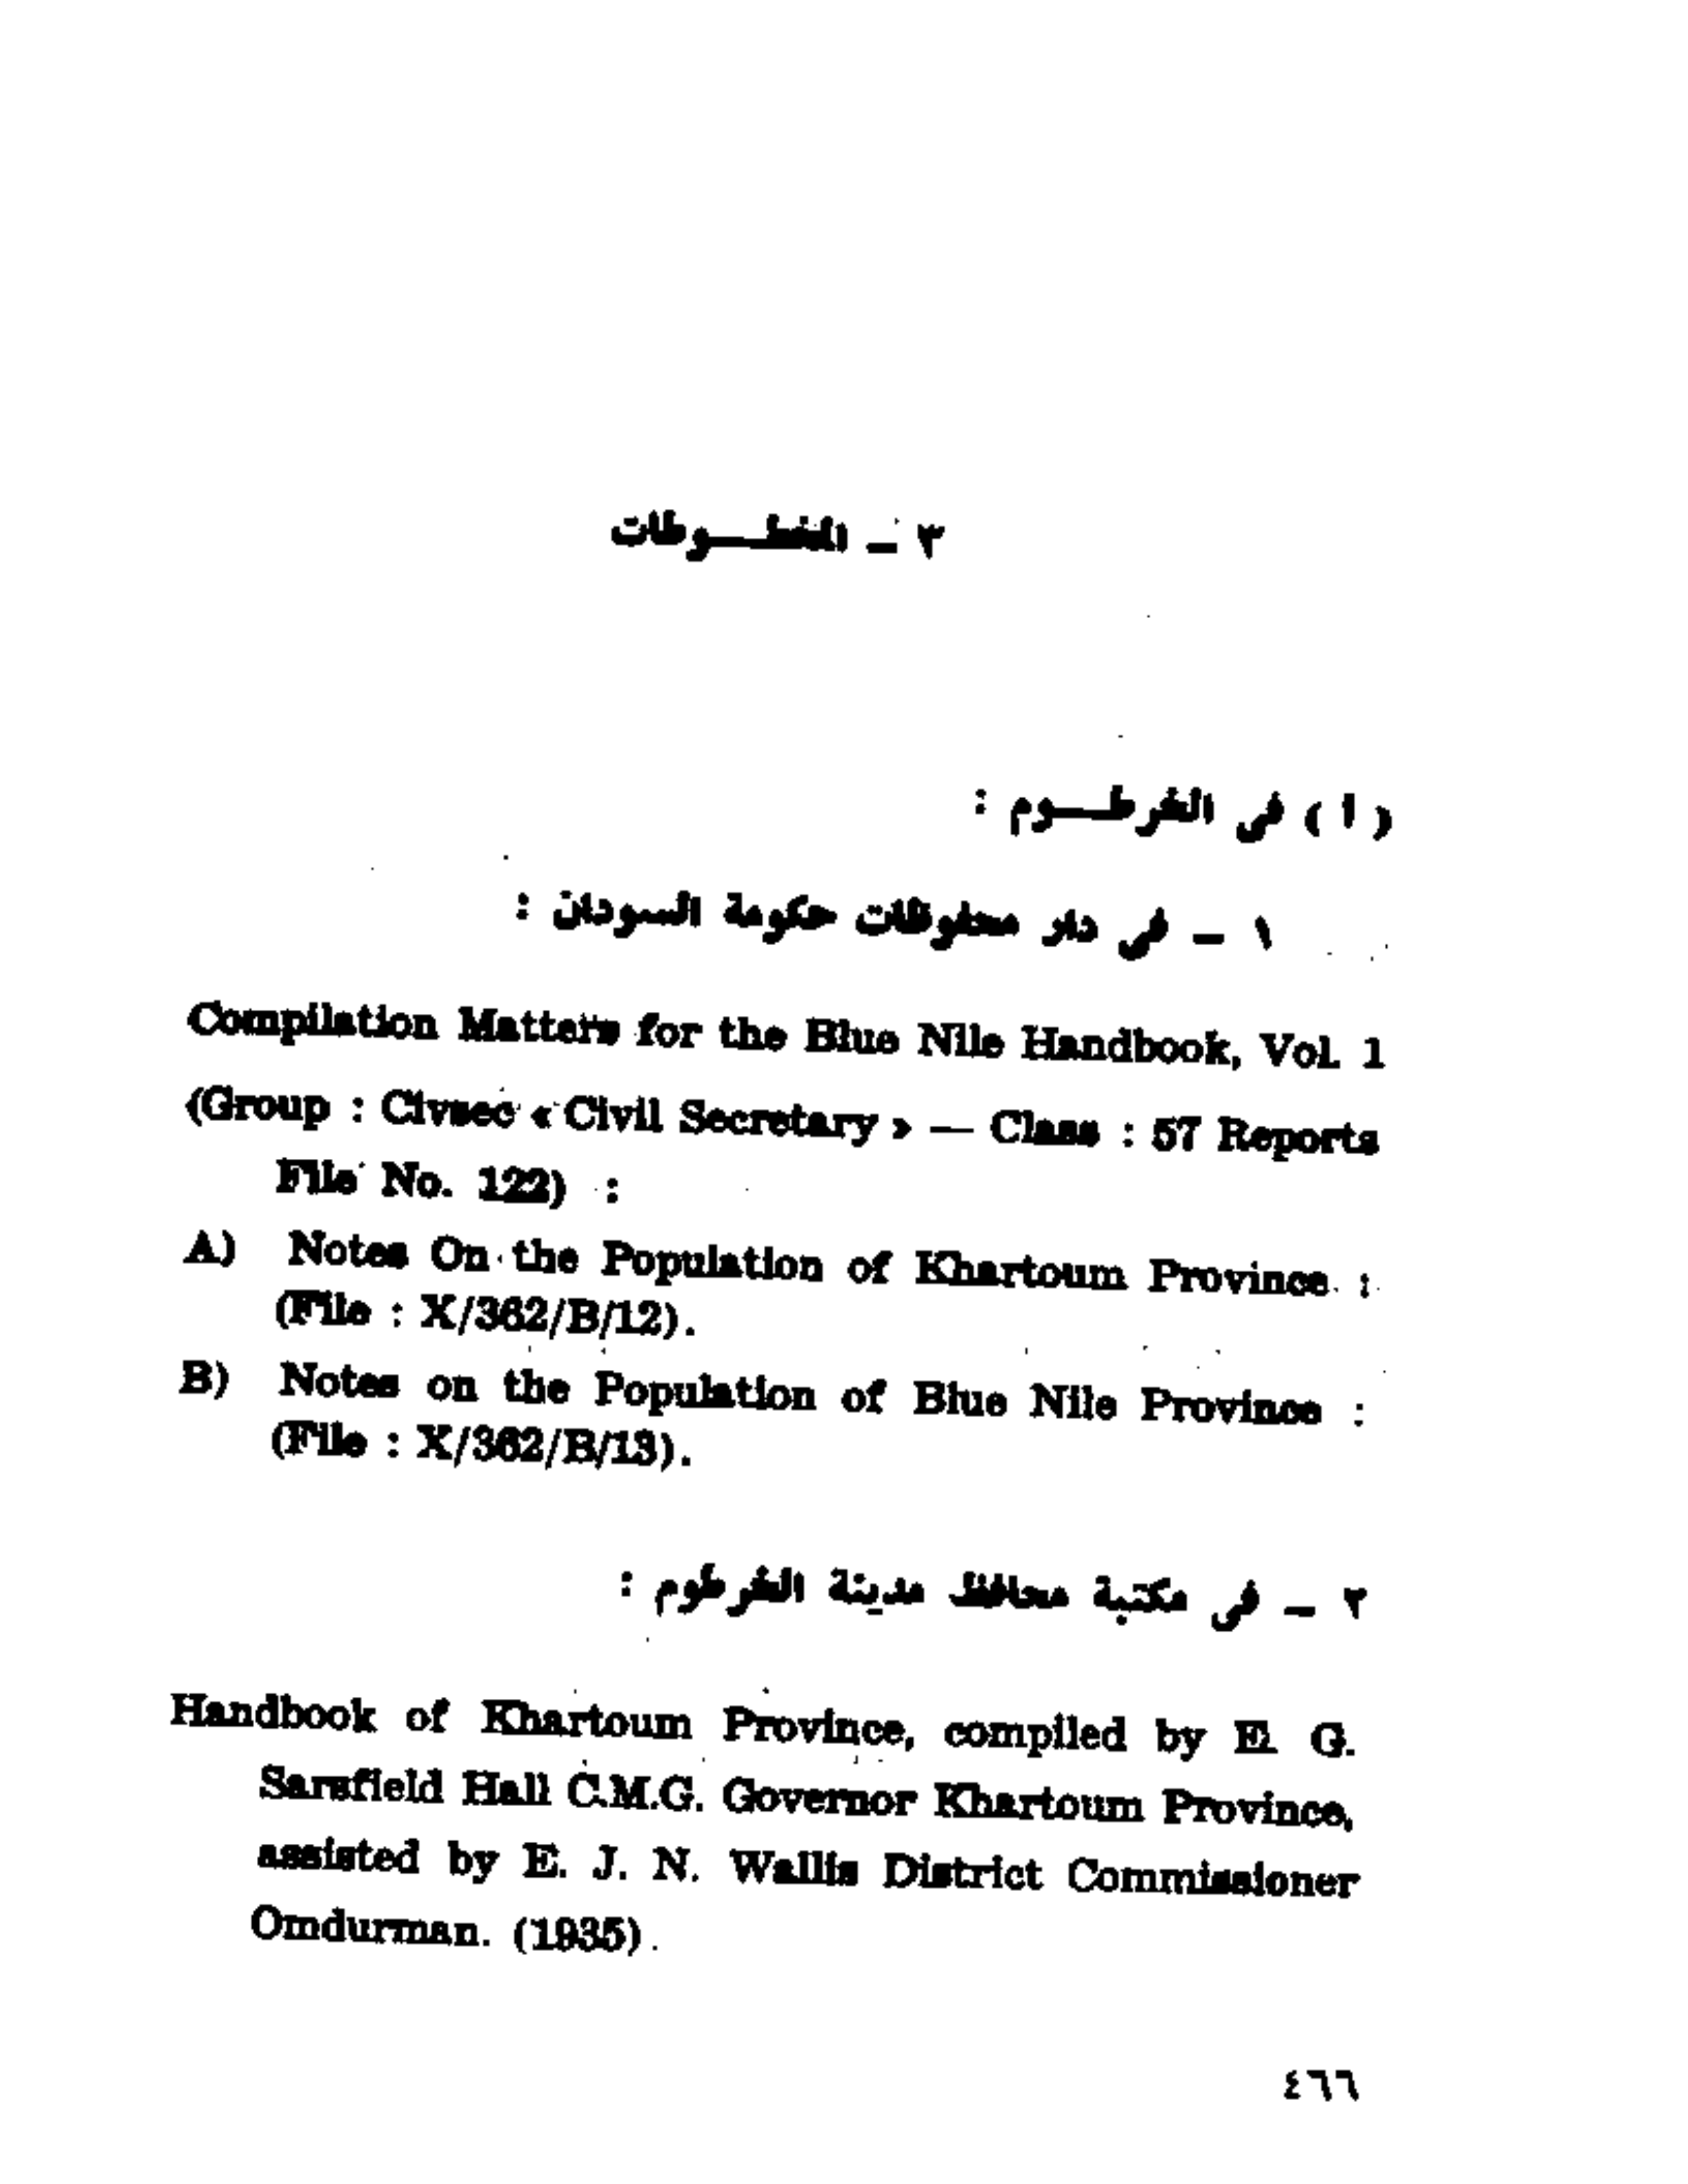 ٣ ـ المخطــوطات
( ا ) في الخرطــوم :
١ ـ في دار محفوظات حكومة السودان :
Compilation Matters for the Blue Nile Handbook, Vol. 1
(Group : Civsec « Civil Secretary » — Class : 57 Reports
File No. 122) :
A) Notes On the Population of Khartoum Province :
(File : X/362/B/12).
B) Notes on the Population of Blue Nile Province :
(File : X/362/B/13).
٢ ـ في مكتبة محافظ مدينة الخرطوم :
Handbook of Khartoum Province, compiled by E. G.
Sarsfield Hall C.M.G. Governor Khartoum Province,
assisted by E. J. N. Wallis District Commissioner
Omdurman. (1935).
٤٦٦